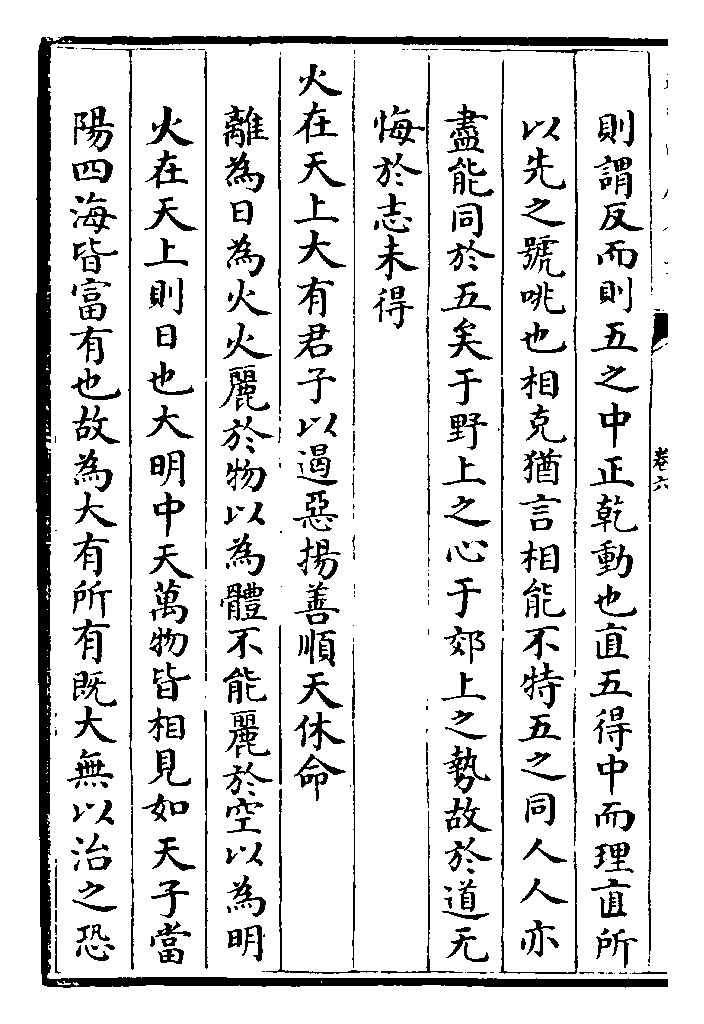 卷六
則謂反而則五之中正乾動也直五得中而理直所
以先之號咷也相克猶言相能不特五之同人人亦
盡能同於五矣于野上之心于郊上之勢故於道无
悔於志未得
火在天上大有君子以遏惡揚善順天休命
離為日為火火麗於物以為體不能麗於空以為明
火在天上則日也大明中天萬物皆相見如天子當
陽四海皆富有也故為大有所有既大無以治之恐